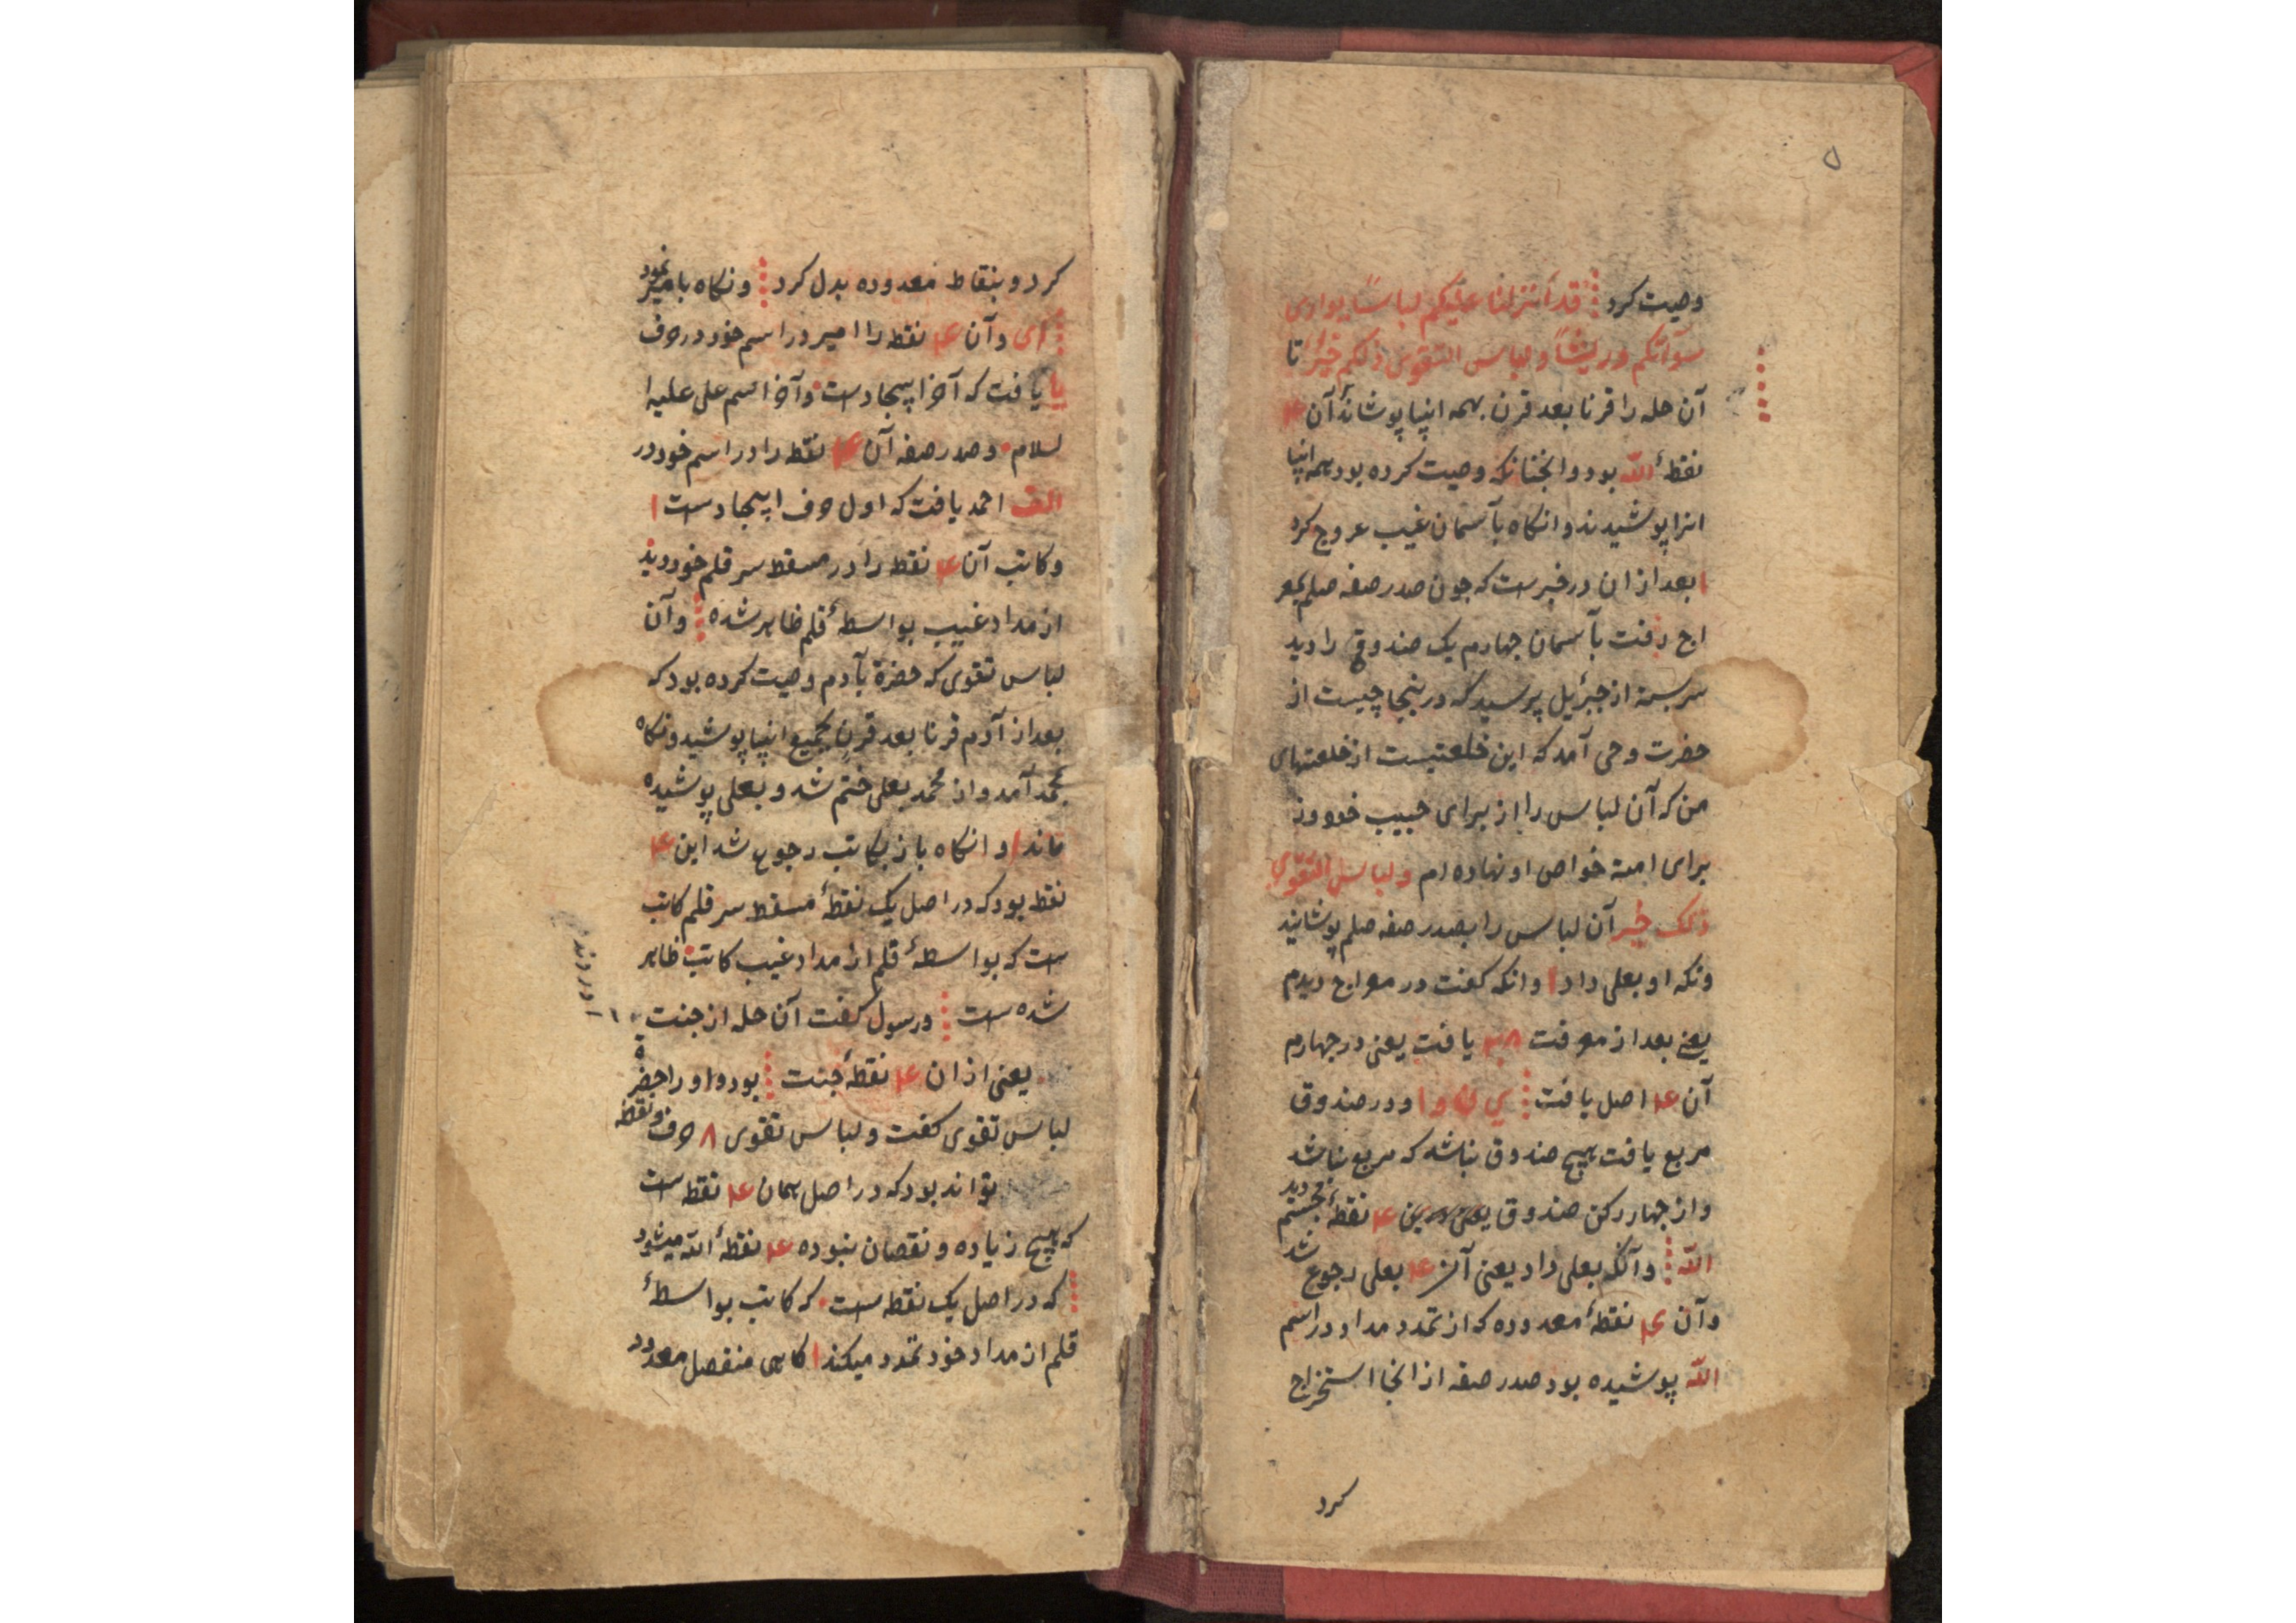 ۵
وصیت کرد قد أنزلنا علیکم لباسًا یواری
سوآتکم وریشًا ولباس التقوی ذلکم خیرٌ تا
آن حله را قرنا بعد قرن بهمه انبیا پوشاند آن ۴
نقطهٔ الله بود و انچنانکه وصیت کرده بود همه انبیا
انرا پوشیدند و انکاه بآسمان غیب عروج کرد
بعد ازان در خبرست که چون صدر صفه صلم بمعر
اج رفت بآسمان جهارم یک صندوق را دید
سربسته از جبرئیل پرسید که درینجا چیست از
حضرت وحی آمد که این خلعتیست از خلعتهای
من که آن لباس را از برای حبیب خود وز
برای امة خواص او نهاده ام ولباس التقوی
ذلک خیر آن لباس را بصدر صفه صلم پوشانید
ونکه او بعلی داد وانکه کفت در معراج دیدم
یعنی بعد از معرفت یافت یعنی در جهارم
آن ۴ اصل یافت ی ن و ا و در صندوق
مربع یافت هیچ صندوق نباشد که مربع نباشد
واز جهار رکن صندوق یعنی ۴ نقطهٔ دید
الله وآنکه بعلی داد یعنی آن ۴ بعلی رجوع شد
وآن ۴ نقطهٔ معدوده که از تمدد مداد در اسم
الله پوشیده بود صدر صفه از انجا استخراج
کرد
کرد و بنقاط معدوده بدل کرد ونکاه بامیر نمود
ای وآن ۴ نقطه را امیر در اسم خود در حرف
یا یافت که آخر ابیجادست وآخر اسم علی علیه ا
لسلام وصدر صفه آن ۴ نقطه را در اسم خود در
الف احمد یافت که اول حرف ابیجادست
وکاتب آن ۴ نقطه را در مسقط سر قلم خود دید
از مداد غیب بواسطهٔ قلم ظاهر شده وآن
لباس تقوی که حضرة بآدم وصیت کرده بود که
بعد از آدم قرنا بعد قرن بجمیع انبیا پوشید ونکاه
بمحمد آمد واز محمد بعلی ختم شد و بعلی پوشیده
ماند وانکاه باز بکاتب رجوع شد این ۴
نقطه بود که در اصل یک نقطهٔ مسقط سر قلم کاتب
ست که بواسطهٔ قلم از مداد غیب کاتب ظاهر
شده ست ورسول کفت آن حله از جنت
یعنی ازان ۴ نقطهٔ جنت بود واورا حضرة
لباس تقوی کفت ولباس تقوی ۸ حرف ونقطه
تواند بود که در اصل همان ۴ نقطه است
که هیچ زیاده ونقصان نبوده ۴ نقطهٔ الله میشود
که در اصل یک نقطه ست که کاتب بواسطهٔ
قلم از مداد خود تمدد میکند کاهی منفصل معدود